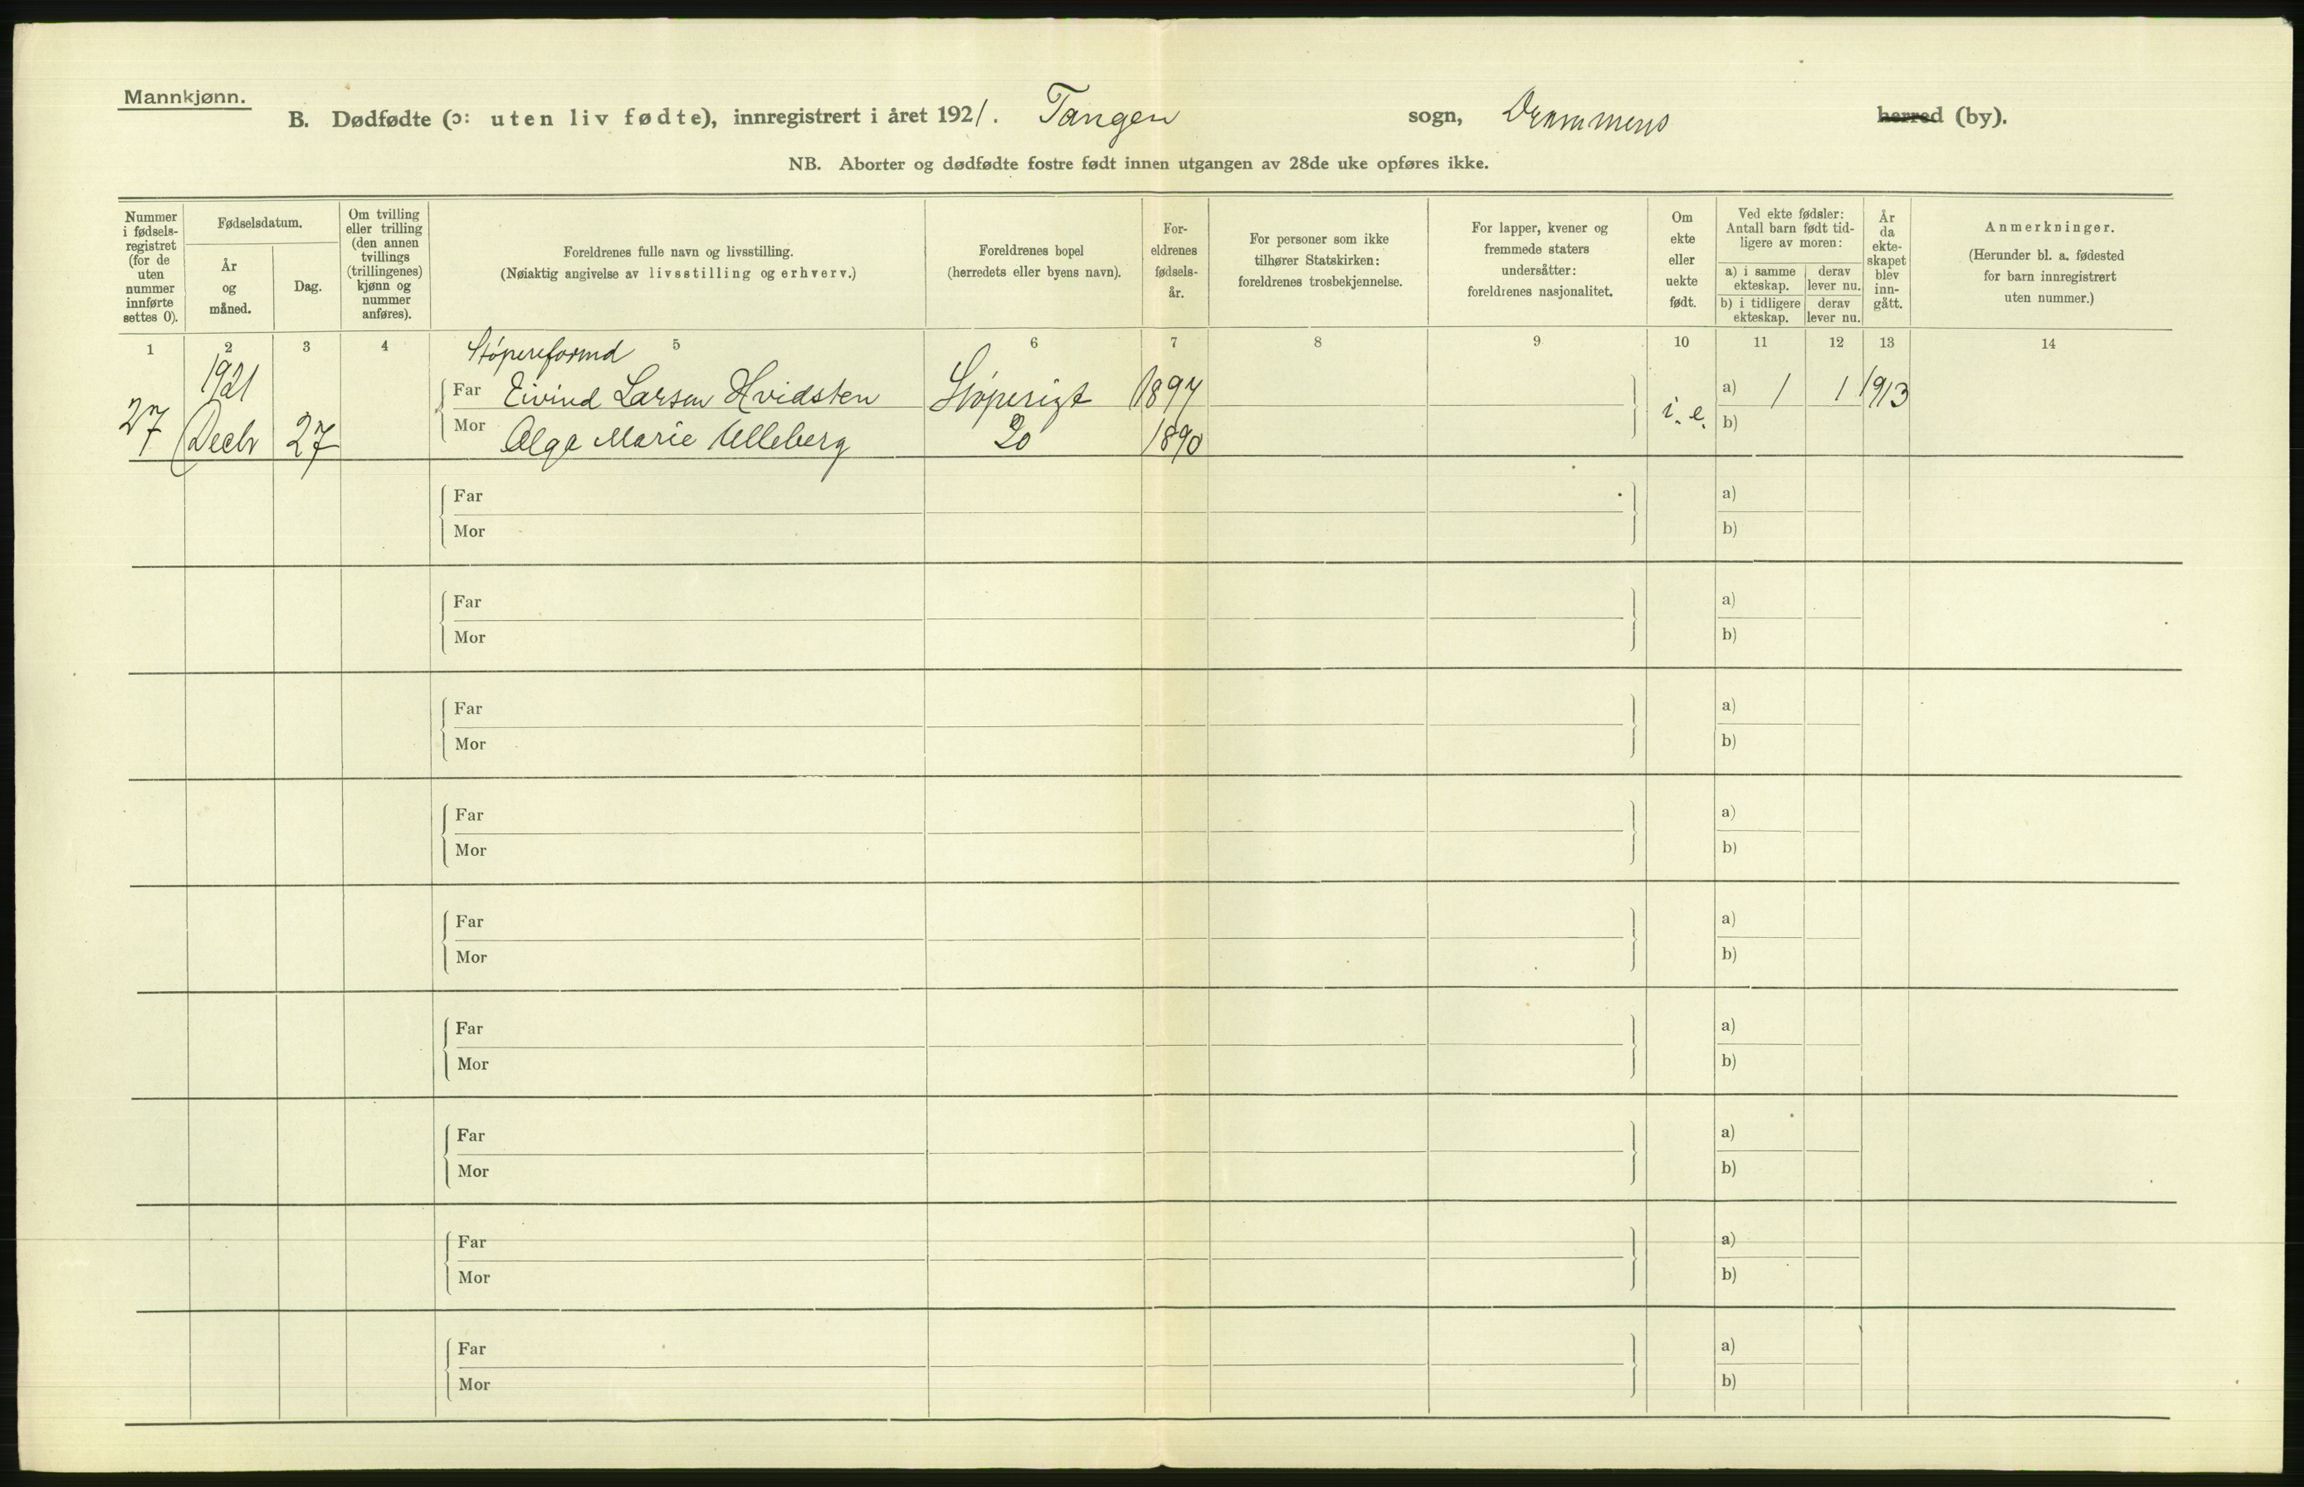 Mannkjønn.
B. Dødfødte (ɔ: uten liv fødte), innregistrert i året 1921. Tangen sogn, Drammens herred (by).
NB. Aborter og dødfødte fostre født innen utgangen av 28de uke opføres ikke.
Nummer i fødsels-registret (for de uten nummer innførte settes 0).
Fødselsdatum.
År og måned.
Dag.
Om tvilling eller trilling (den annen tvillings (trillingenes) kjønn og nummer anføres).
Foreldrenes fulle navn og livsstilling.
(Nøiaktig angivelse av livsstilling og erhverv.)
Foreldrenes bopel
(herredets eller byens navn).
For-eldrenes fødsels-år.
For personer som ikke tilhører Statskirken: foreldrenes trosbekjennelse.
For lapper, kvener og fremmede staters undersåtter: foreldrenes nasjonalitet.
Om ekte eller uekte født.
Ved ekte fødsler: Antall barn født tid-ligere av moren:
a) i samme ekteskap.
derav lever nu.
b) i tidligere ekteskap.
derav lever nu.
År da ekte-skapet blev inn-gått.
Anmerkninger.
(Herunder bl. a. fødested for barn innregistrert uten nummer.)
1 2 3 4 5 6 7 8 9 10 11 12 13 14
Støpereformd
1921
Far Eivind Larsen Hvidsten Støperigt 1897 a) 1 1 1913
27 Decbr 27 Mor Olga Marie Ulleberg Do 1890 i. e. b)
Far a)
Mor b)
Far a)
Mor b)
Far a)
Mor b)
Far a)
Mor b)
Far a)
Mor b)
Far a)
Mor b)
Far a)
Mor b)
Far a)
Mor b)
Far a)
Mor b)